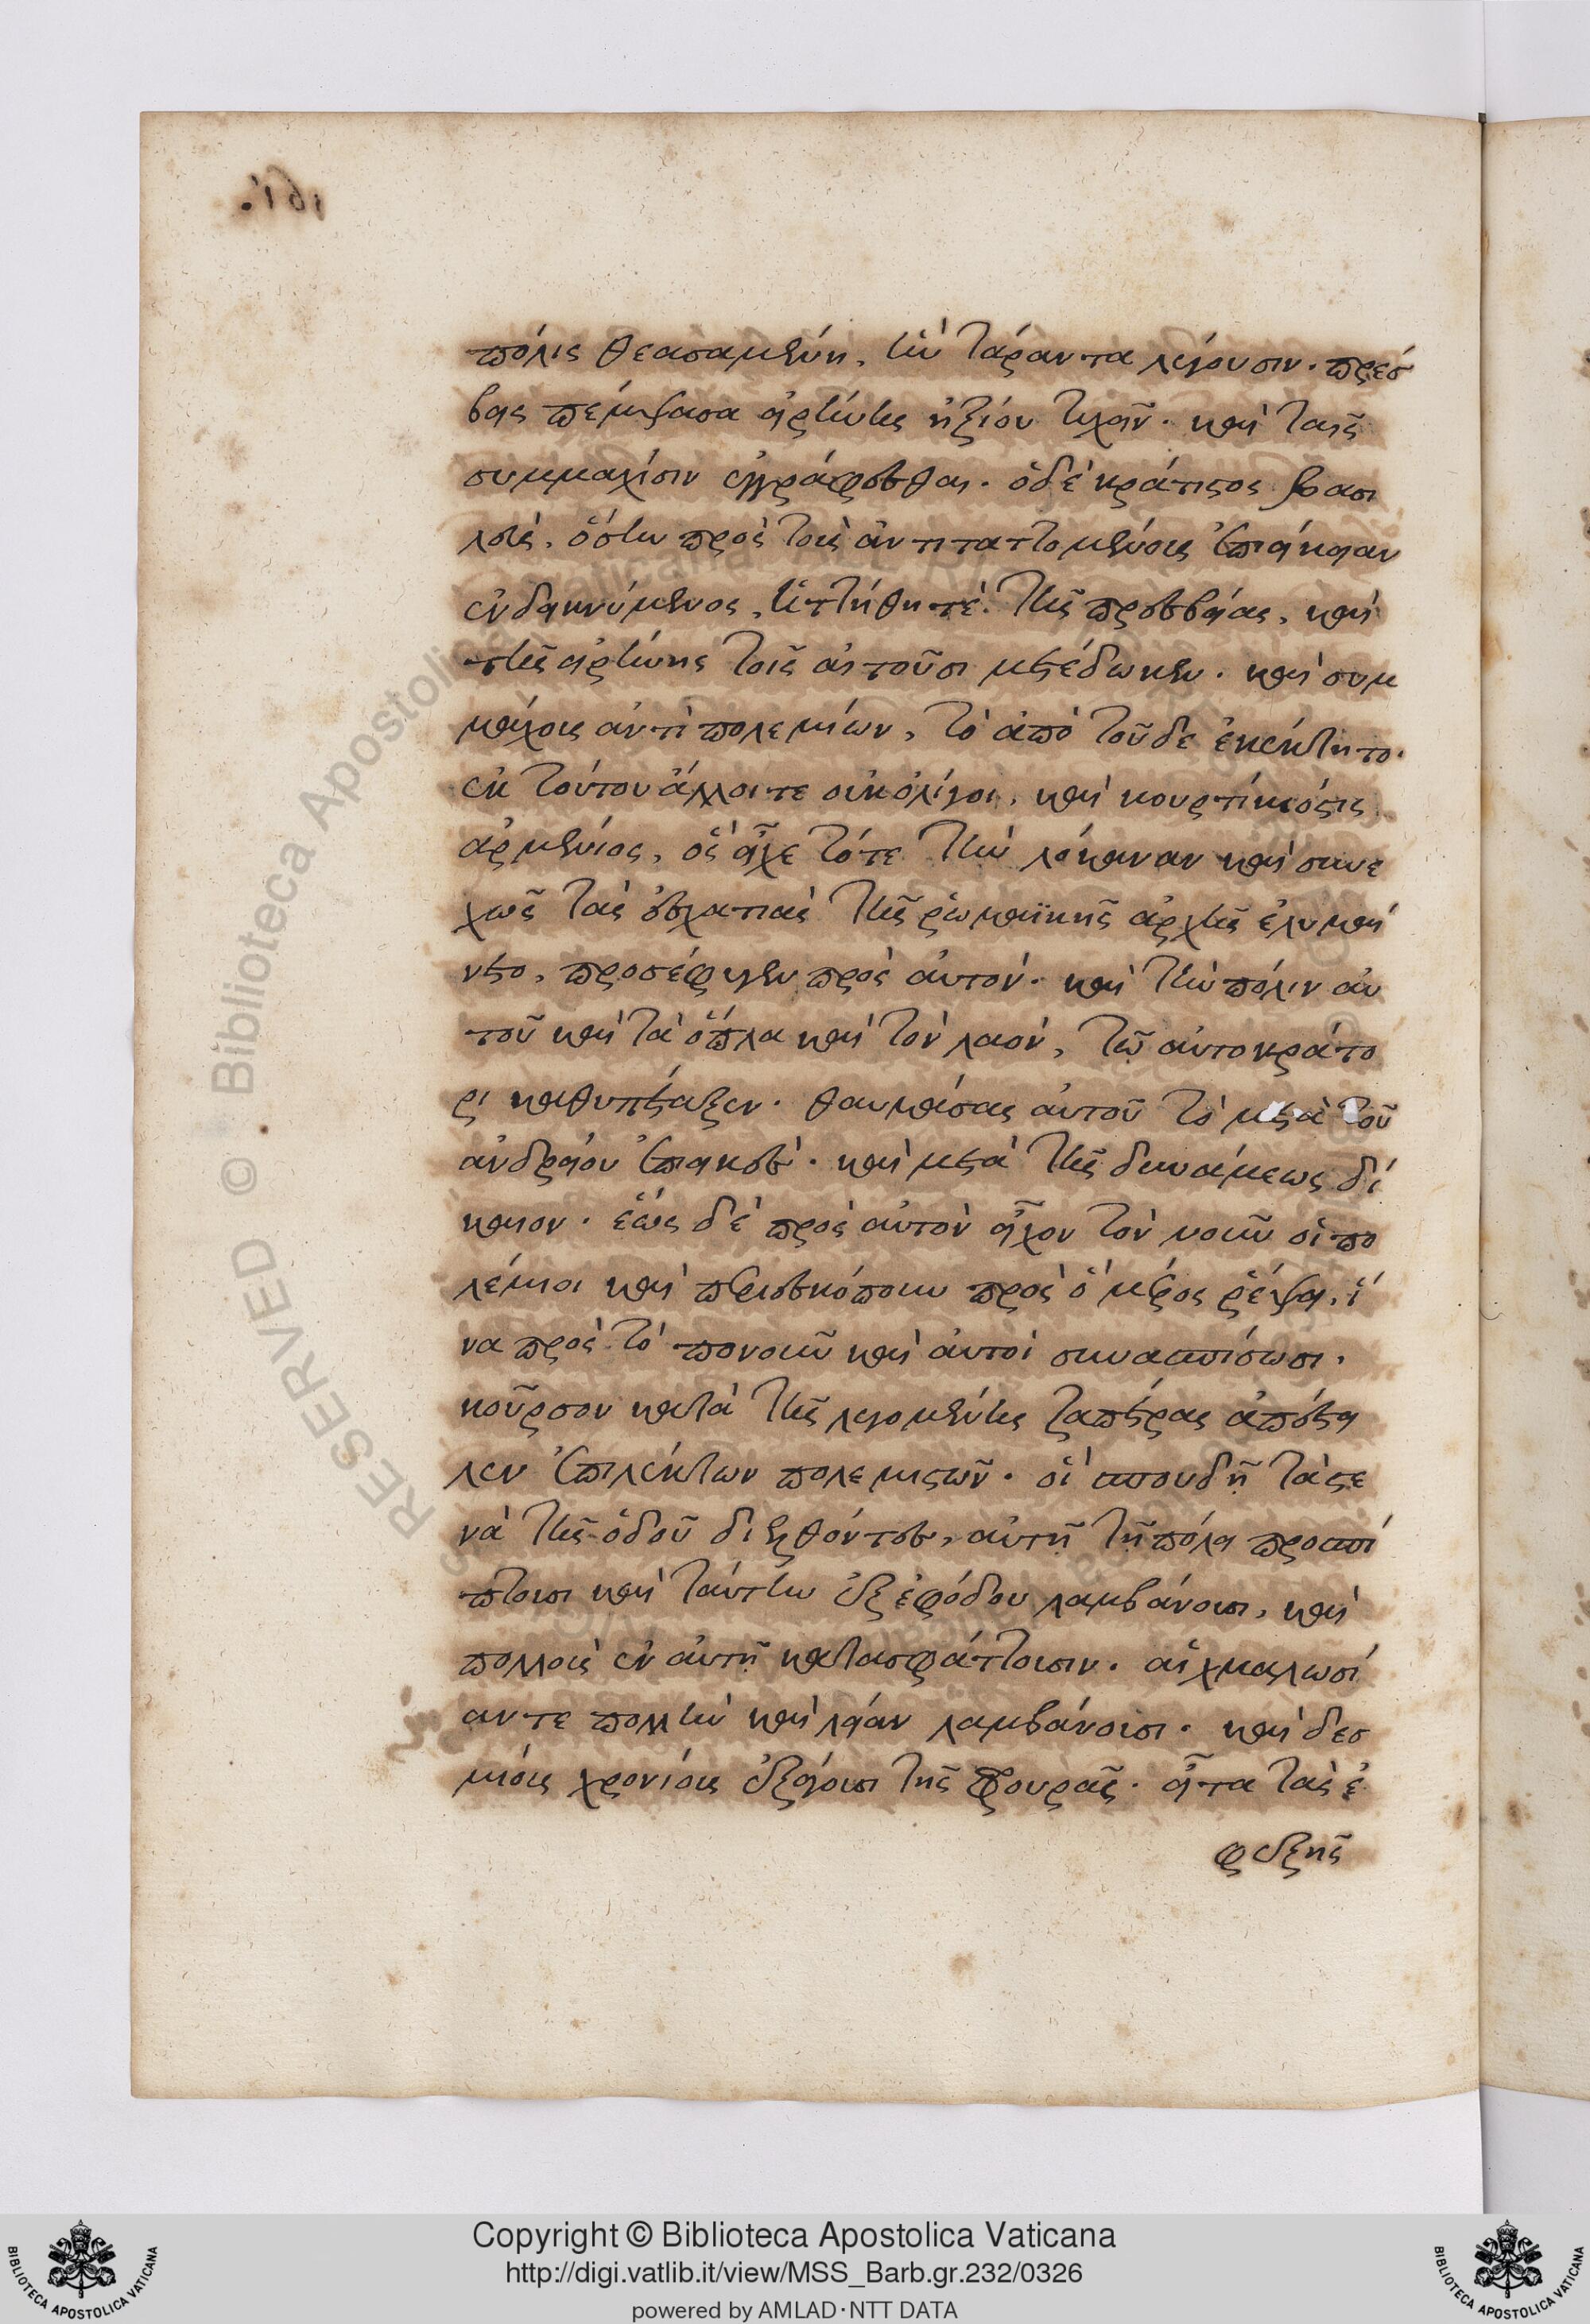 πόλις θεασαμένη, ἣν Τάραντα λέγουσιν. πρέσ
βεις πέμψασα εἰρήνης ἠξίου τυχεῖν. καὶ ταῖς
συμμαχίσιν ἐγγράφεσθαι. ὁ δὲ κράτιστος βασι
λεὺς, ὅστην πρὸς τοὺς ἀντιταττομένους ἐπιείκειαν
ἐνδεικνύμενος, ἡττήθη τὲ τῆς πρεσβείας, καὶ
τῆς εἰρήνης τοῖς αἰτοῦσι μετέδωκεν. καὶ συμ
μάχους ἀντὶ πολεμίων, τὸ ἀπὸ τοῦδε ἐκέκτητο.
ἐκ τούτου ἄλλοι τε οὐκ ὀλίγοι, καὶ κουρτίκιός τις
ἀρμένιος, ὃς εἶχε τότε τὴν λόκαναν καὶ συνε
χῶς τὰς ἐσχατιὰς τῆς ῥωμαϊκῆς ἀρχῆς ἐλυμαί
νετο, προσέφυγεν πρὸς αὐτόν. καὶ τὴν πόλιν αὐ
τοῦ καὶ τὰ ὅπλα καὶ τὸν λαὸν, τῷ αὐτοκράτο
ρι καθυπέταξεν. θαυμάσας αὐτοῦ τὸ μετὰ τοῦ
ἀνδρείου ἐπιεικὲς. καὶ μετὰ τῆς δυνάμεως δί
καιον. ἕως δὲ πρὸς αὐτὸν εἶχον τὸν νοῦν οἱ πο
λέμιοι καὶ περιεσκόπουν πρὸς ὃ μέρος ῥέψει, ἵ
να πρὸς τὸ πονοῦν καὶ αὐτοὶ συνασπίσωσι.
κοῦρσον κατὰ τῆς λεγομένης ζαπέτρας ἀπέστει
λεν ἐπιλέκτων πολεμιστῶν. οἳ σπουδῇ τὰ στε
νὰ τῆς ὁδοῦ διελθόντες, αὐτῇ τῇ πόλει προσπί
πτουσι καὶ ταύτην ἐξ ἐφόδου λαμβάνουσι, καὶ
πολλοὺς ἐν αὐτῇ κατασφάττουσιν. αἰχμαλωσί
αν τε πολλὴν καὶ λείαν λαμβάνουσι. καὶ δεσ
μίους χρονίους ἐξάγουσι τῆς φρουρᾶς. εἶτα τὰς ἐ
φεξῆς
Copyright © Biblioteca Apostolica Vaticana
http://digi.vatlib.it/view/MSS_Barb.gr.232/0326
powered by AMLAD·NTT DATA
BIBLIOTECA APOSTOLICA VATICANA
BIBLIOTECA APOSTOLICA VATICANA